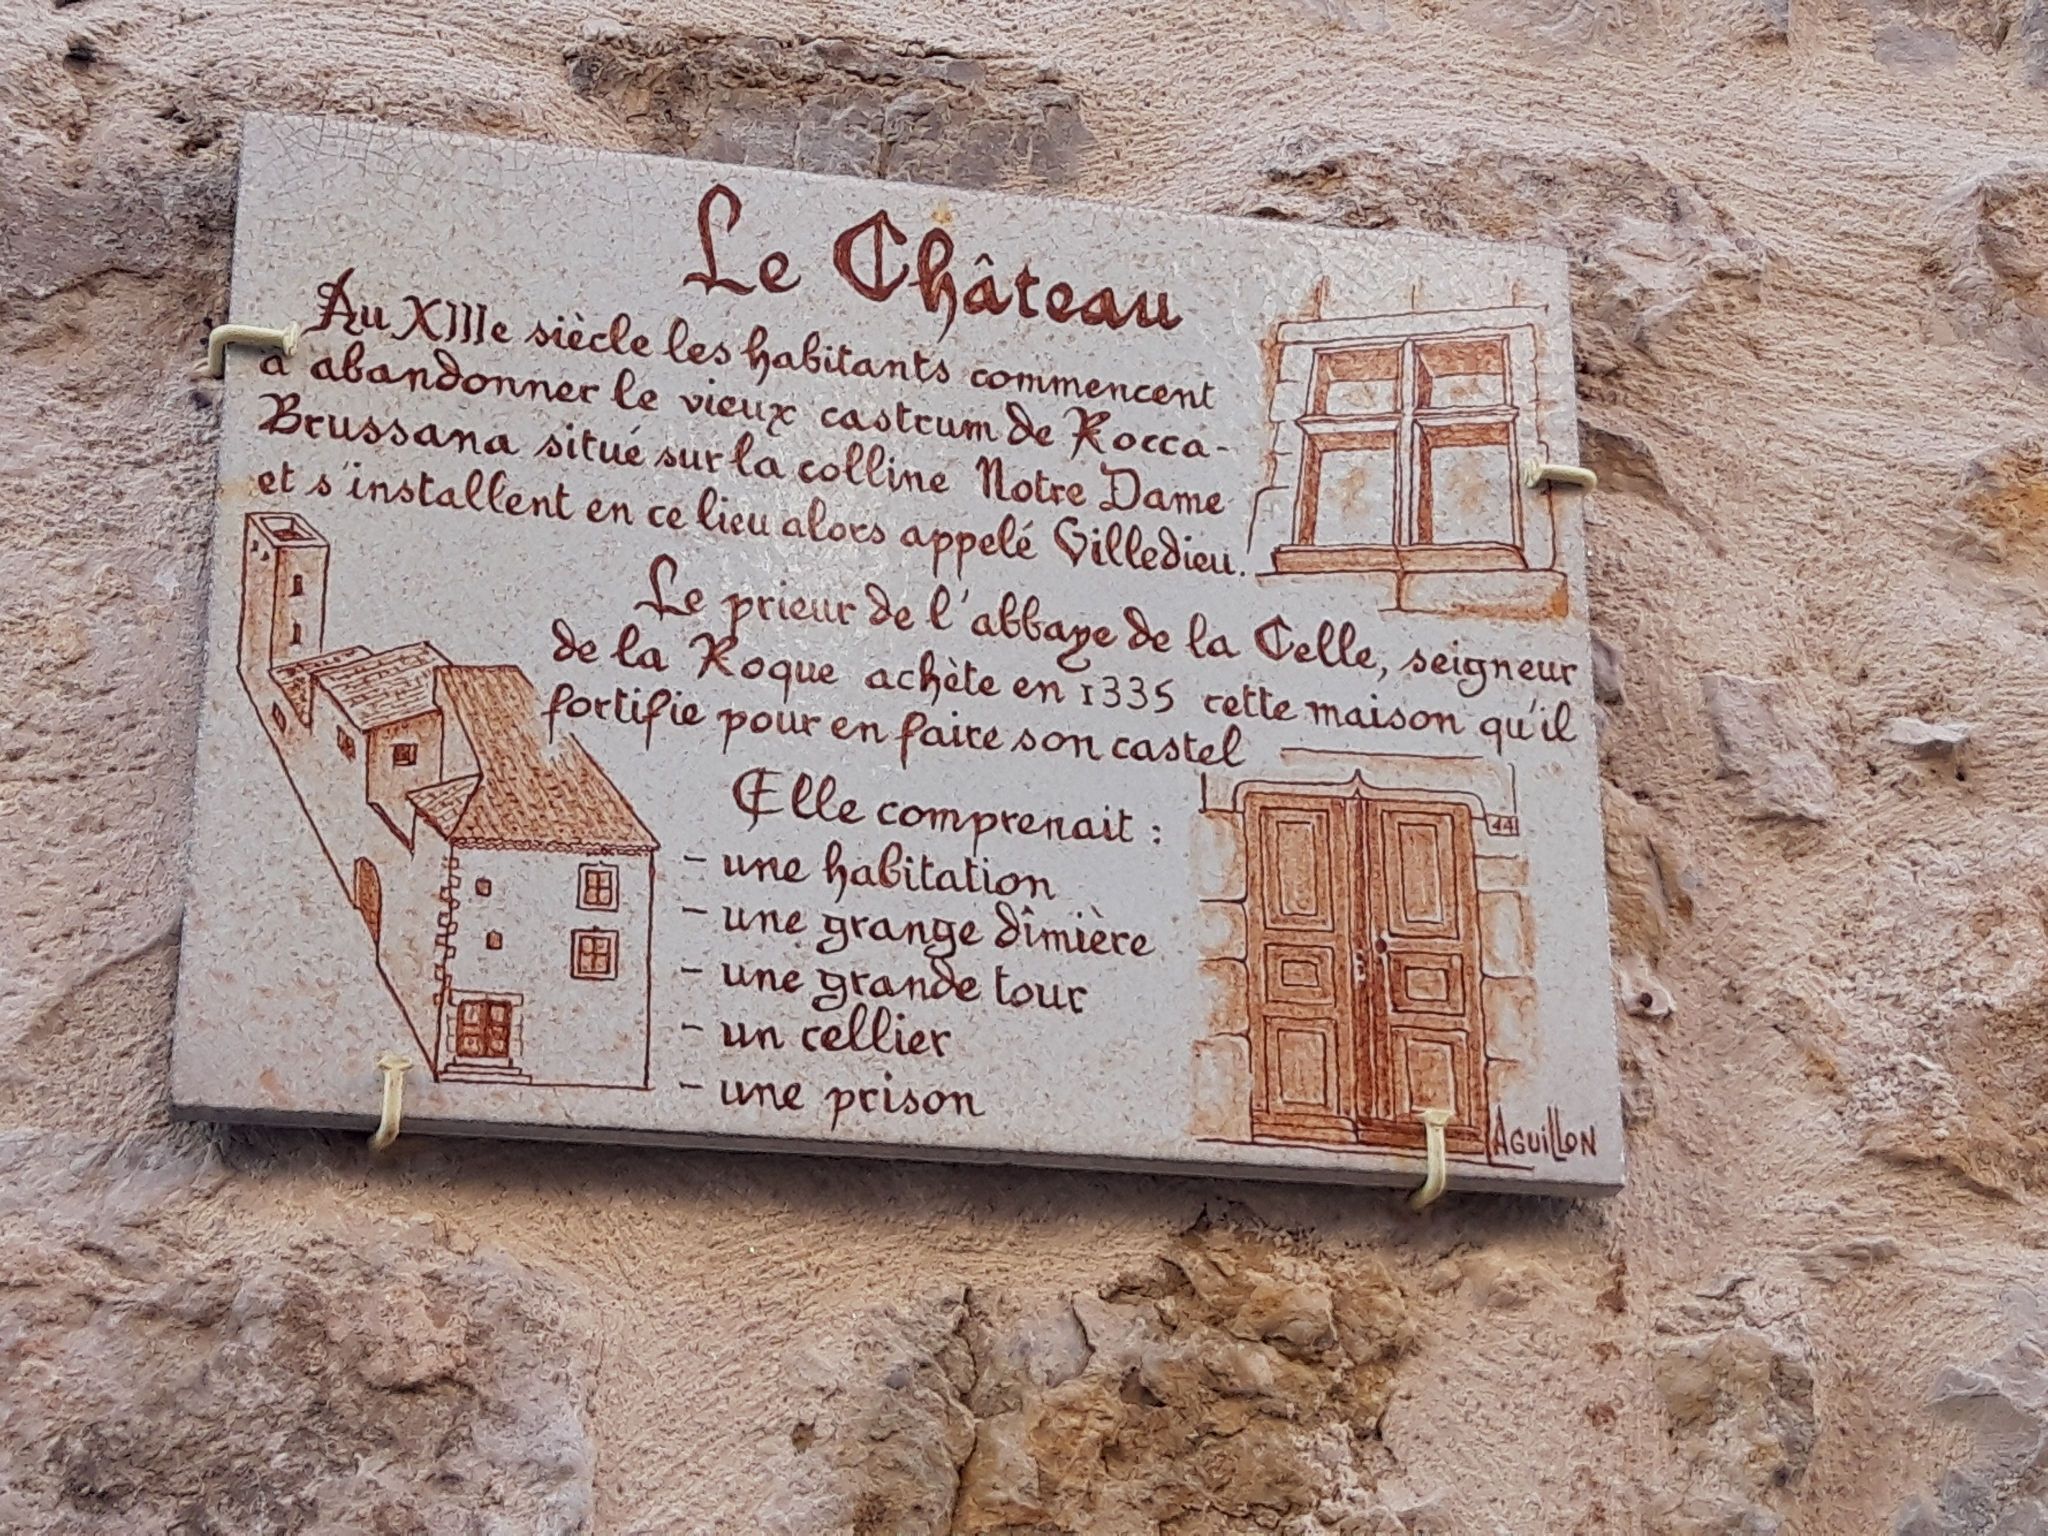 Le Château
Au XIIIe siècle les habitants commencent
à abandonner le vieux castrum de Rocca-
Brussana situé sur la colline Notre Dame
et s'installent en ce lieu alors appelé Villedieu.
Le prieur de l'abbaye de la Celle, seigneur
de la Roque achète en 1335 cette maison qu'il
fortifie pour en faire son castel
Elle comprenait :
- une habitation
- une grange dîmière
- une grande tour
- un cellier
- une prison
44
AGUILLON